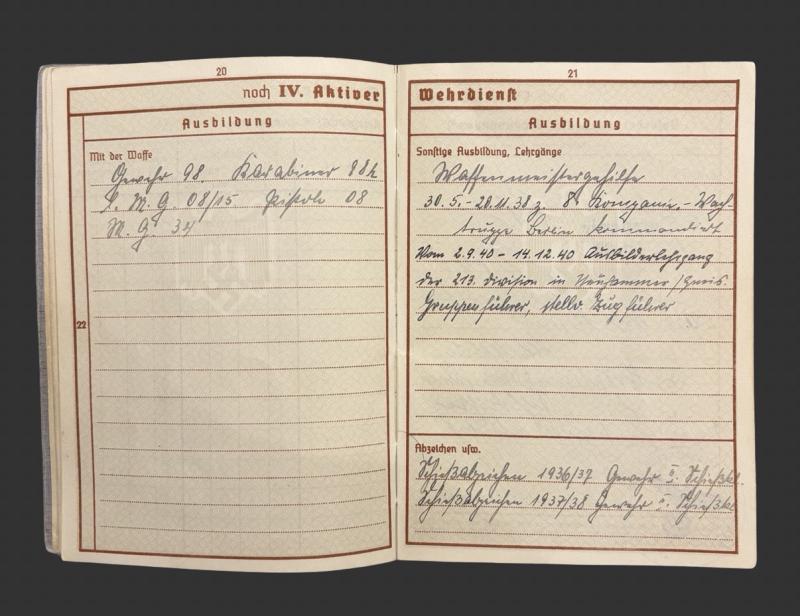 20
noch IV. Aktiver
Ausbildung
22
Mit der Waffe
Gewehr 98. Karabiner 98k
S. M. G. 08/15 Pistole 08
M. G. 34
21
Wehrdienst
Ausbildung
Sonstige Ausbildung, Lehrgänge
Waffenmeistergehilfe
30. 5. - 28.11.38 z. 8. Kompanie, Wach-
truppe Berlin kommandiert
Vom 2.9.40 - 14.12.40 Ausbilderlehrgang
der 213. Division in Neuhammer/Queis.
Gruppenführer, stellv. Zugführer
Abzeichen usw.
Schießabzeichen 1936/37 Gewehr II. Schießkl.
Schießabzeichen 1937/38 Gewehr II. Schießkl